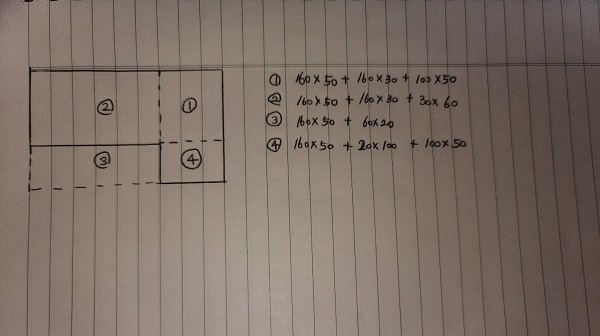 ② ① ① 160×50 + 160×30 + 100×50
② 160×50 + 160×30 + 30×60
③ 160×50 + 60×20
③ ④ ④ 160×50 + 20×100 + 100×50